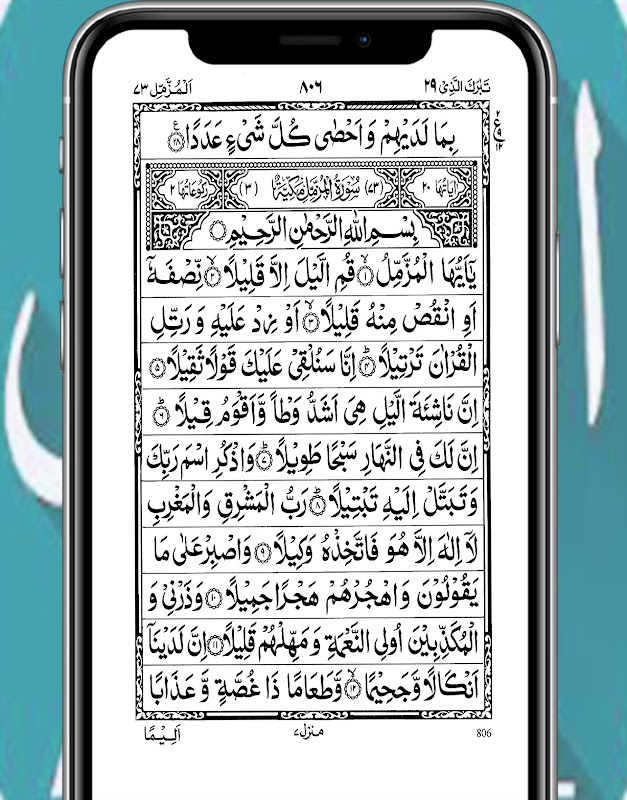 تَبٰرَكَ الَّذِیْ ۲۹
۸۰۶
اَلْمُزَّمِّل ۷۳
بِمَا لَدَیْهِمْ وَ اَحْصٰی كُلَّ شَیْءٍ عَدَدًا ۲۸
ع
۲
۹
۱۲
اٰیَاتُهَا ۲۰ (۷۳) سُوْرَةُ الْمُزَّمِّلِ مَكِّیَّةٌ (۳) رُكُوْعَاتُهَا ۲
بِسْمِ اللّٰهِ الرَّحْمٰنِ الرَّحِیْمِ
یٰۤاَیُّهَا الْمُزَّمِّلُ ۱ قُمِ الَّیْلَ اِلَّا قَلِیْلًا ۲ نِّصْفَهٗۤ
اَوِ انْقُصْ مِنْهُ قَلِیْلًا ۳ اَوْ زِدْ عَلَیْهِ وَ رَتِّلِ
الْقُرْاٰنَ تَرْتِیْلًا ۴ اِنَّا سَنُلْقِیْ عَلَیْكَ قَوْلًا ثَقِیْلًا ۵
اِنَّ نَاشِئَةَ الَّیْلِ هِیَ اَشَدُّ وَطْاً وَّ اَقْوَمُ قِیْلًا ۶
اِنَّ لَكَ فِی النَّهَارِ سَبْحًا طَوِیْلًا ۷ وَ اذْكُرِ اسْمَ رَبِّكَ
وَ تَبَتَّلْ اِلَیْهِ تَبْتِیْلًا ۸ رَبُّ الْمَشْرِقِ وَ الْمَغْرِبِ
لَاۤ اِلٰهَ اِلَّا هُوَ فَاتَّخِذْهُ وَكِیْلًا ۹ وَ اصْبِرْ عَلٰی مَا
یَقُوْلُوْنَ وَ اهْجُرْهُمْ هَجْرًا جَمِیْلًا ۱۰ وَ ذَرْنِیْ وَ
الْمُكَذِّبِیْنَ اُولِی النَّعْمَةِ وَ مَهِّلْهُمْ قَلِیْلًا ۱۱ اِنَّ لَدَیْنَاۤ
اَنْكَالًا وَّ جَحِیْمًا ۱۲ وَّ طَعَامًا ذَا غُصَّةٍ وَّ عَذَابًا
اَلِیْمًا
منزل ۷
806